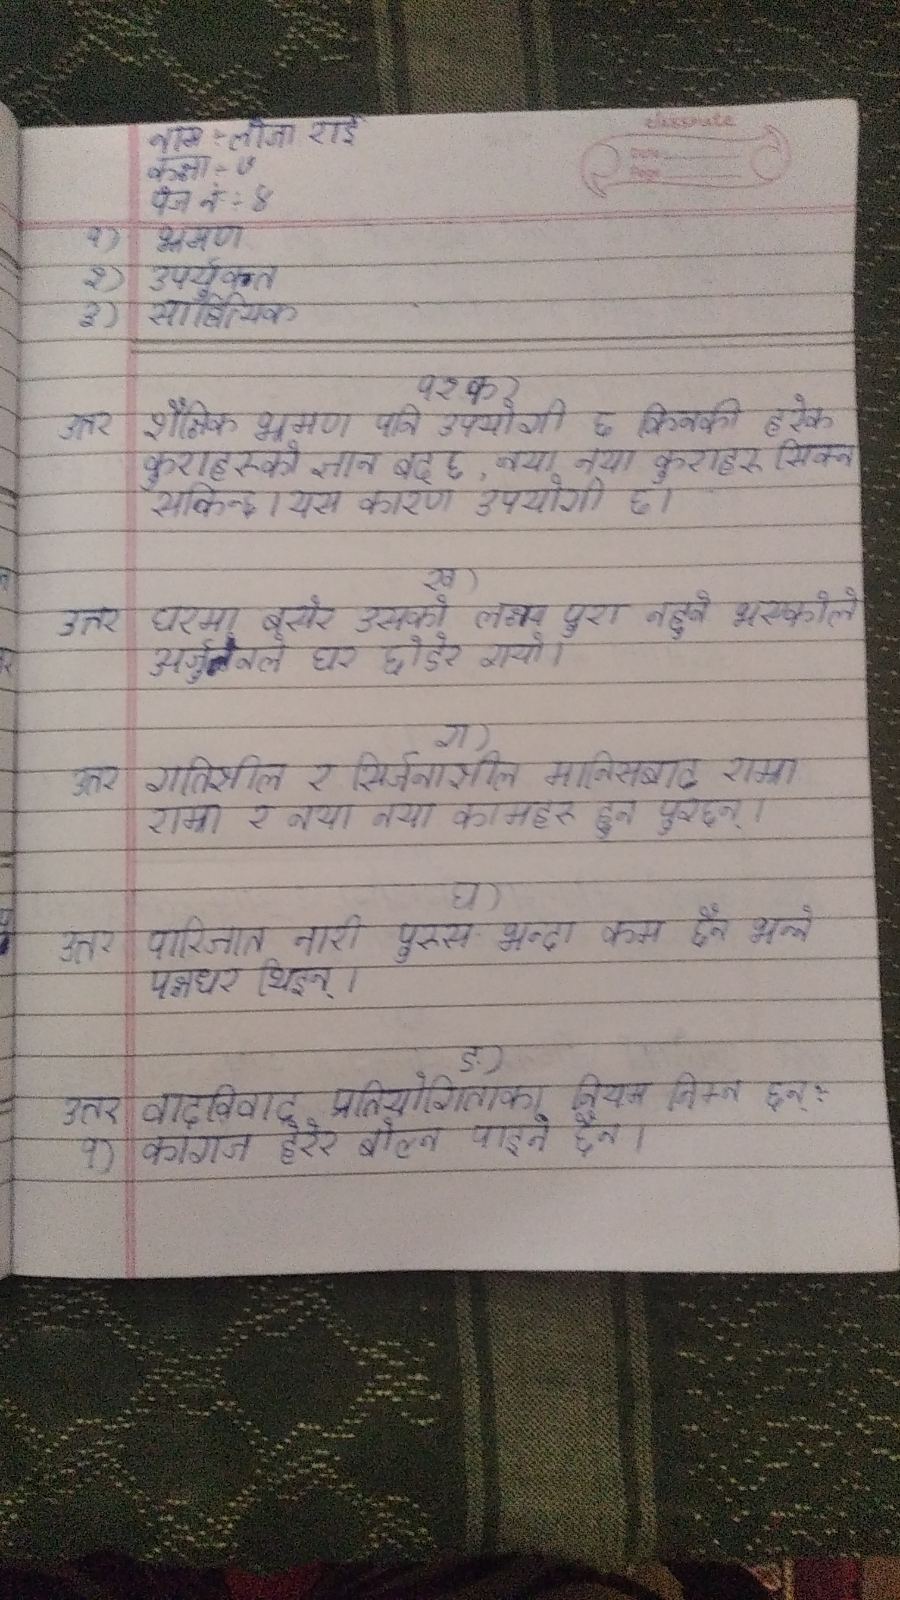 classmate
Date
Page
नाम :- लीजा राई
कक्षा :- ७
पेज नं :- ४
१) भ्रमण
२) उपर्युक्त
३) साहित्यिक
१२ क)
उत्तर शैक्षिक भ्रमण पनि उपयोगी छ किनकी हरेक
कुराहरुको ज्ञान बढ्छ , नया नया कुराहरु सिक्न
सकिन्छ । यस कारण उपयोगी छ।
ख)
उत्तर घरमा बसेर उसको लक्ष्य पुरा नहुने भएकोले
अर्जुनले घर छोडेर गयो।
ग)
उत्तर गतिशील र सिर्जनाशील मानिसबाट राम्रा
राम्रा र नया नया कामहरु हुन पुग्छन्।
घ)
उत्तर पारिजात नारी पुरुस भन्दा कम छैन भन्ने
पक्षधर थिइन्।
ङ)
उत्तर वादविवाद प्रतियोगिताका नियम निम्न छन् :-
१) कागज हेरेर बोल्न पाइने छैन।